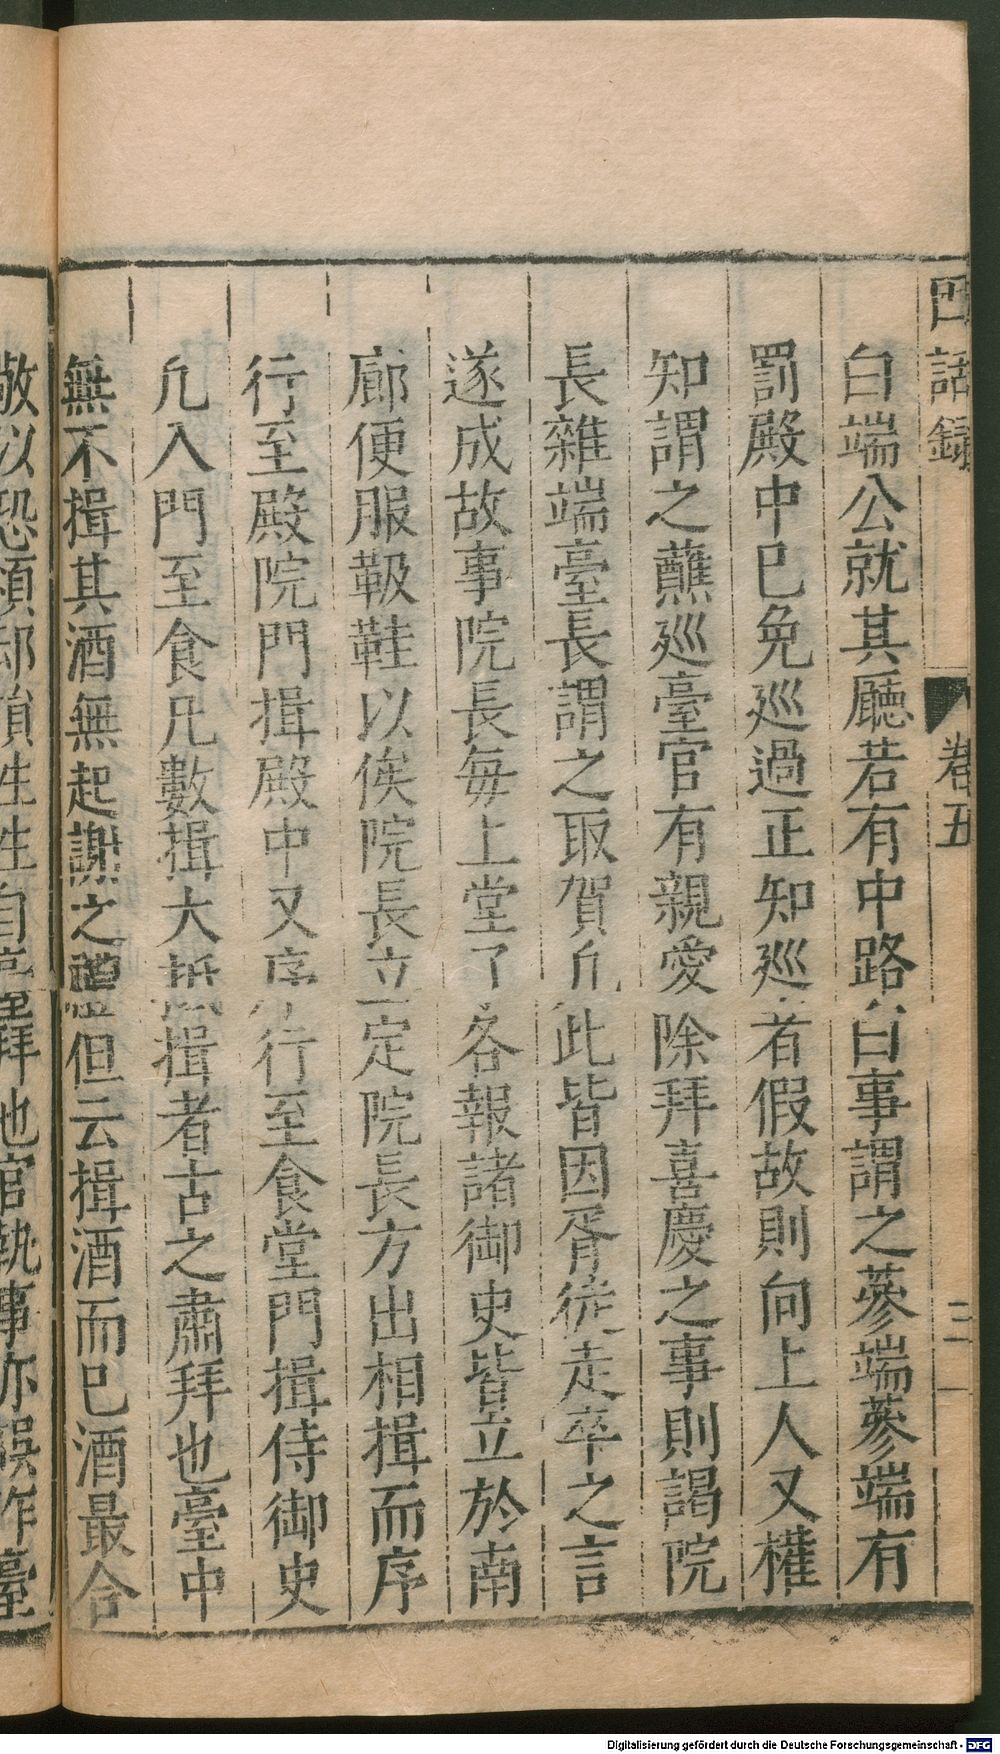 因話録 卷五 三
白端公就其廳若有中路白事謂之蔘端蔘端有
罰殿中已免巡過正知巡者假故則向上人又權
知謂之蘸巡臺官有親愛除拜喜慶之事則謁院
長雜端臺長謂之取賀凢此皆因胥徒走卒之言
遂成故事院長每上堂了各報諸御史皆立於南
廊便服靸鞋以俟院長立定院長方出相揖而序
行至殿院門揖殿中又序行至食堂門揖侍御史
凢入門至食凢數揖大抵揖者古之肅拜也臺中
無不揖其酒無起謝之禮但云揖酒而已酒最合
敬以恐煩却損往往自臺拜他官執事亦誤作臺
Digitalisierung gefördert durch die Deutsche Forschungsgemeinschaft - DFG